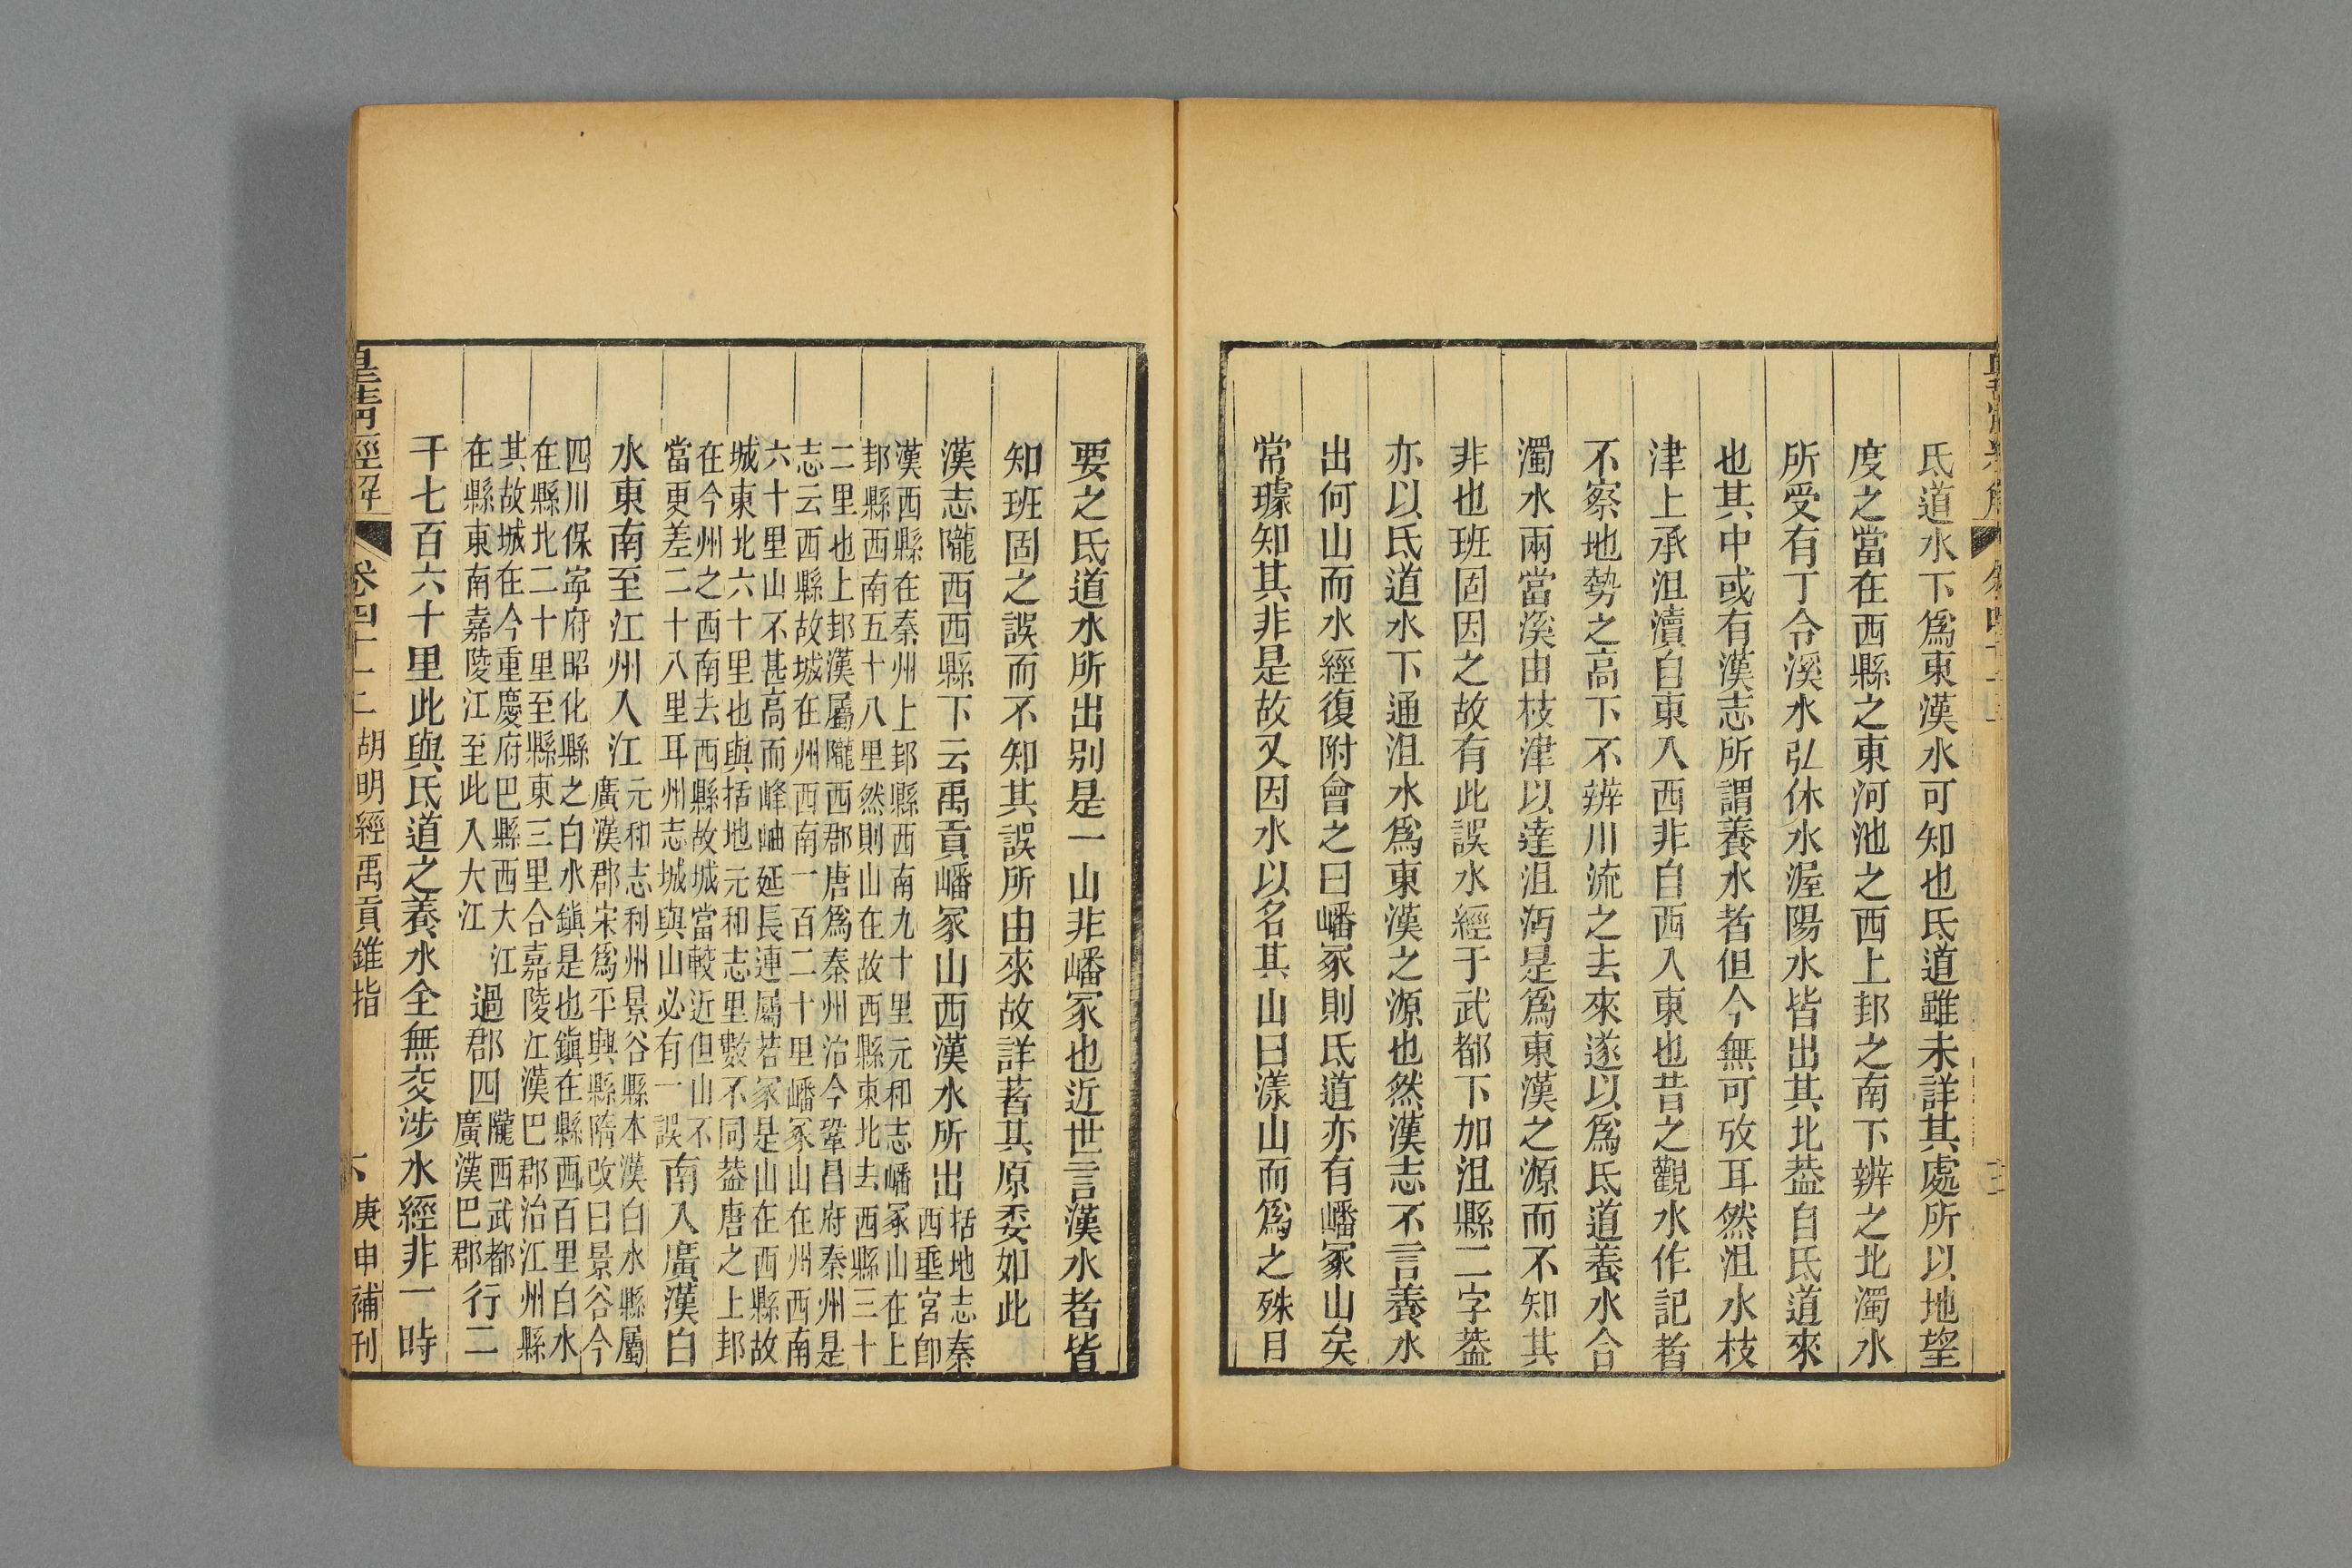 氐道水下爲東漢水可知也氐道雖未詳其處所以地望
度之當在西縣之東河池之西上邽之南下辨之北濁水
所受有丁令溪水弘休水渥陽水皆出其北葢自氐道來
也其中或有漢志所謂養水者但今無可攷耳然沮水枝
津上承沮瀆自東入西非自西入東也昔之觀水作記者
不察地勢之高下不辨川流之去來遂以爲氐道養水合
濁水兩當溪由枝津以達沮沔是爲東漢之源而不知其
非也班固因之故有此誤水經于武都下加沮縣二字葢
亦以氐道水下通沮水爲東漢之源也然漢志不言養水
出何山而水經復附會之曰嶓冢則氐道亦有嶓冢山矣
常璩知其非是故又因水以名其山曰漾山而爲之殊目
要之氐道水所出别是一山非嶓冢也近世言漢水者皆
知班固之誤而不知其誤所由來故詳著其原委如此
漢志隴西西縣下云禹貢嶓冢山西漢水所出
括地志秦
西垂宮卽
漢西縣在秦州上邽縣西南九十里元和志嶓冢山在上
邽縣西南五十八里然則山在故西縣東北去西縣三十
二里也上邽漢屬隴西郡唐爲秦州治今鞏昌府秦州是
志云西縣故城在州西南一百二十里嶓冢山在州西南
六十里山不甚高而峰岫延長連屬若冢是山在西縣故
城東北六十里也與括地元和志里數不同葢唐之上邽
在今州之西南去西縣故城當較近但山不
當更差二十八里耳州志城與山必有一誤
南入廣漢白
水東南至江州入江
元和志利州景谷縣本漢白水縣屬
廣漢郡宋爲平興縣隋改曰景谷今
四川保寧府昭化縣之白水鎮是也鎮在縣西百里白水
在縣北二十里至縣東三里合嘉陵江漢巴郡治江州縣
其故城在今重慶府巴縣西大江
在縣東南嘉陵江至此入大江
過郡四
隴西武都
廣漢巴郡
行二
千七百六十里此與氐道之養水全無交涉水經非一時
皇清經解 卷四十二 胡明經禹貢錐指 庚申補刊